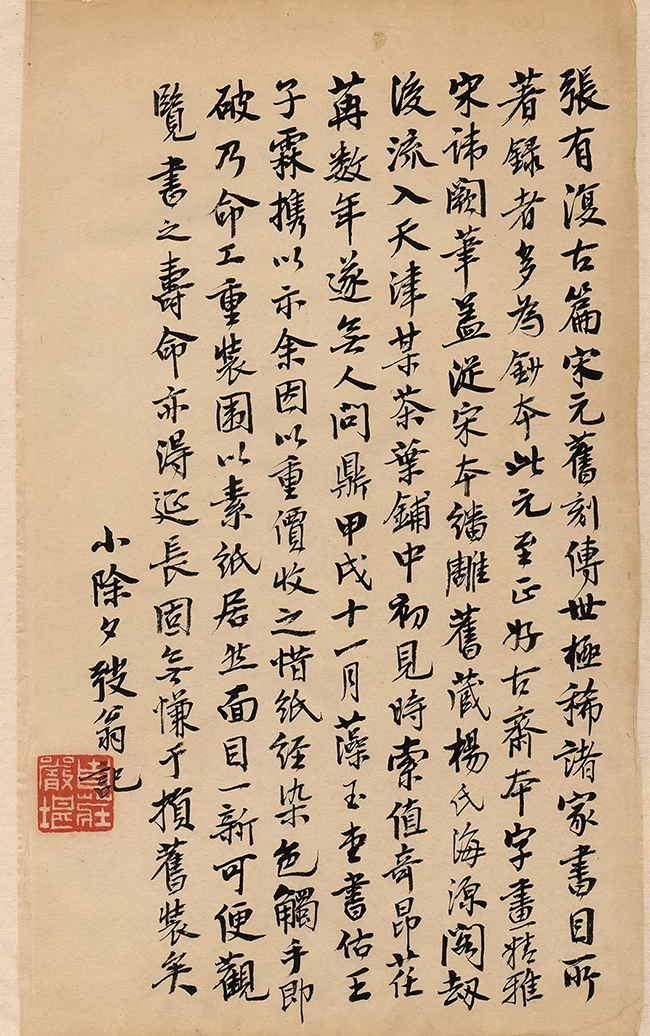 張有復古篇宋元舊刻傳世極稀諸家書目所
著録者多為鈔本此元至正好古齋本字畫精雅
宋諱闕筆蓋從宋本繙雕舊藏楊氏海源閣劫
後流入天津某茶葉鋪中初見時索值奇昂荏
苒数年遂無人問鼎甲戌十一月藻玉堂書估王
子霖攜以示余因以重價收之惜紙經染色觸手即
破乃命工重裝圍以素紙居然面目一新可便觀
覽書之壽命亦得延長固無慊于損舊裝矣
小除夕弢翁記
莊嚴堪